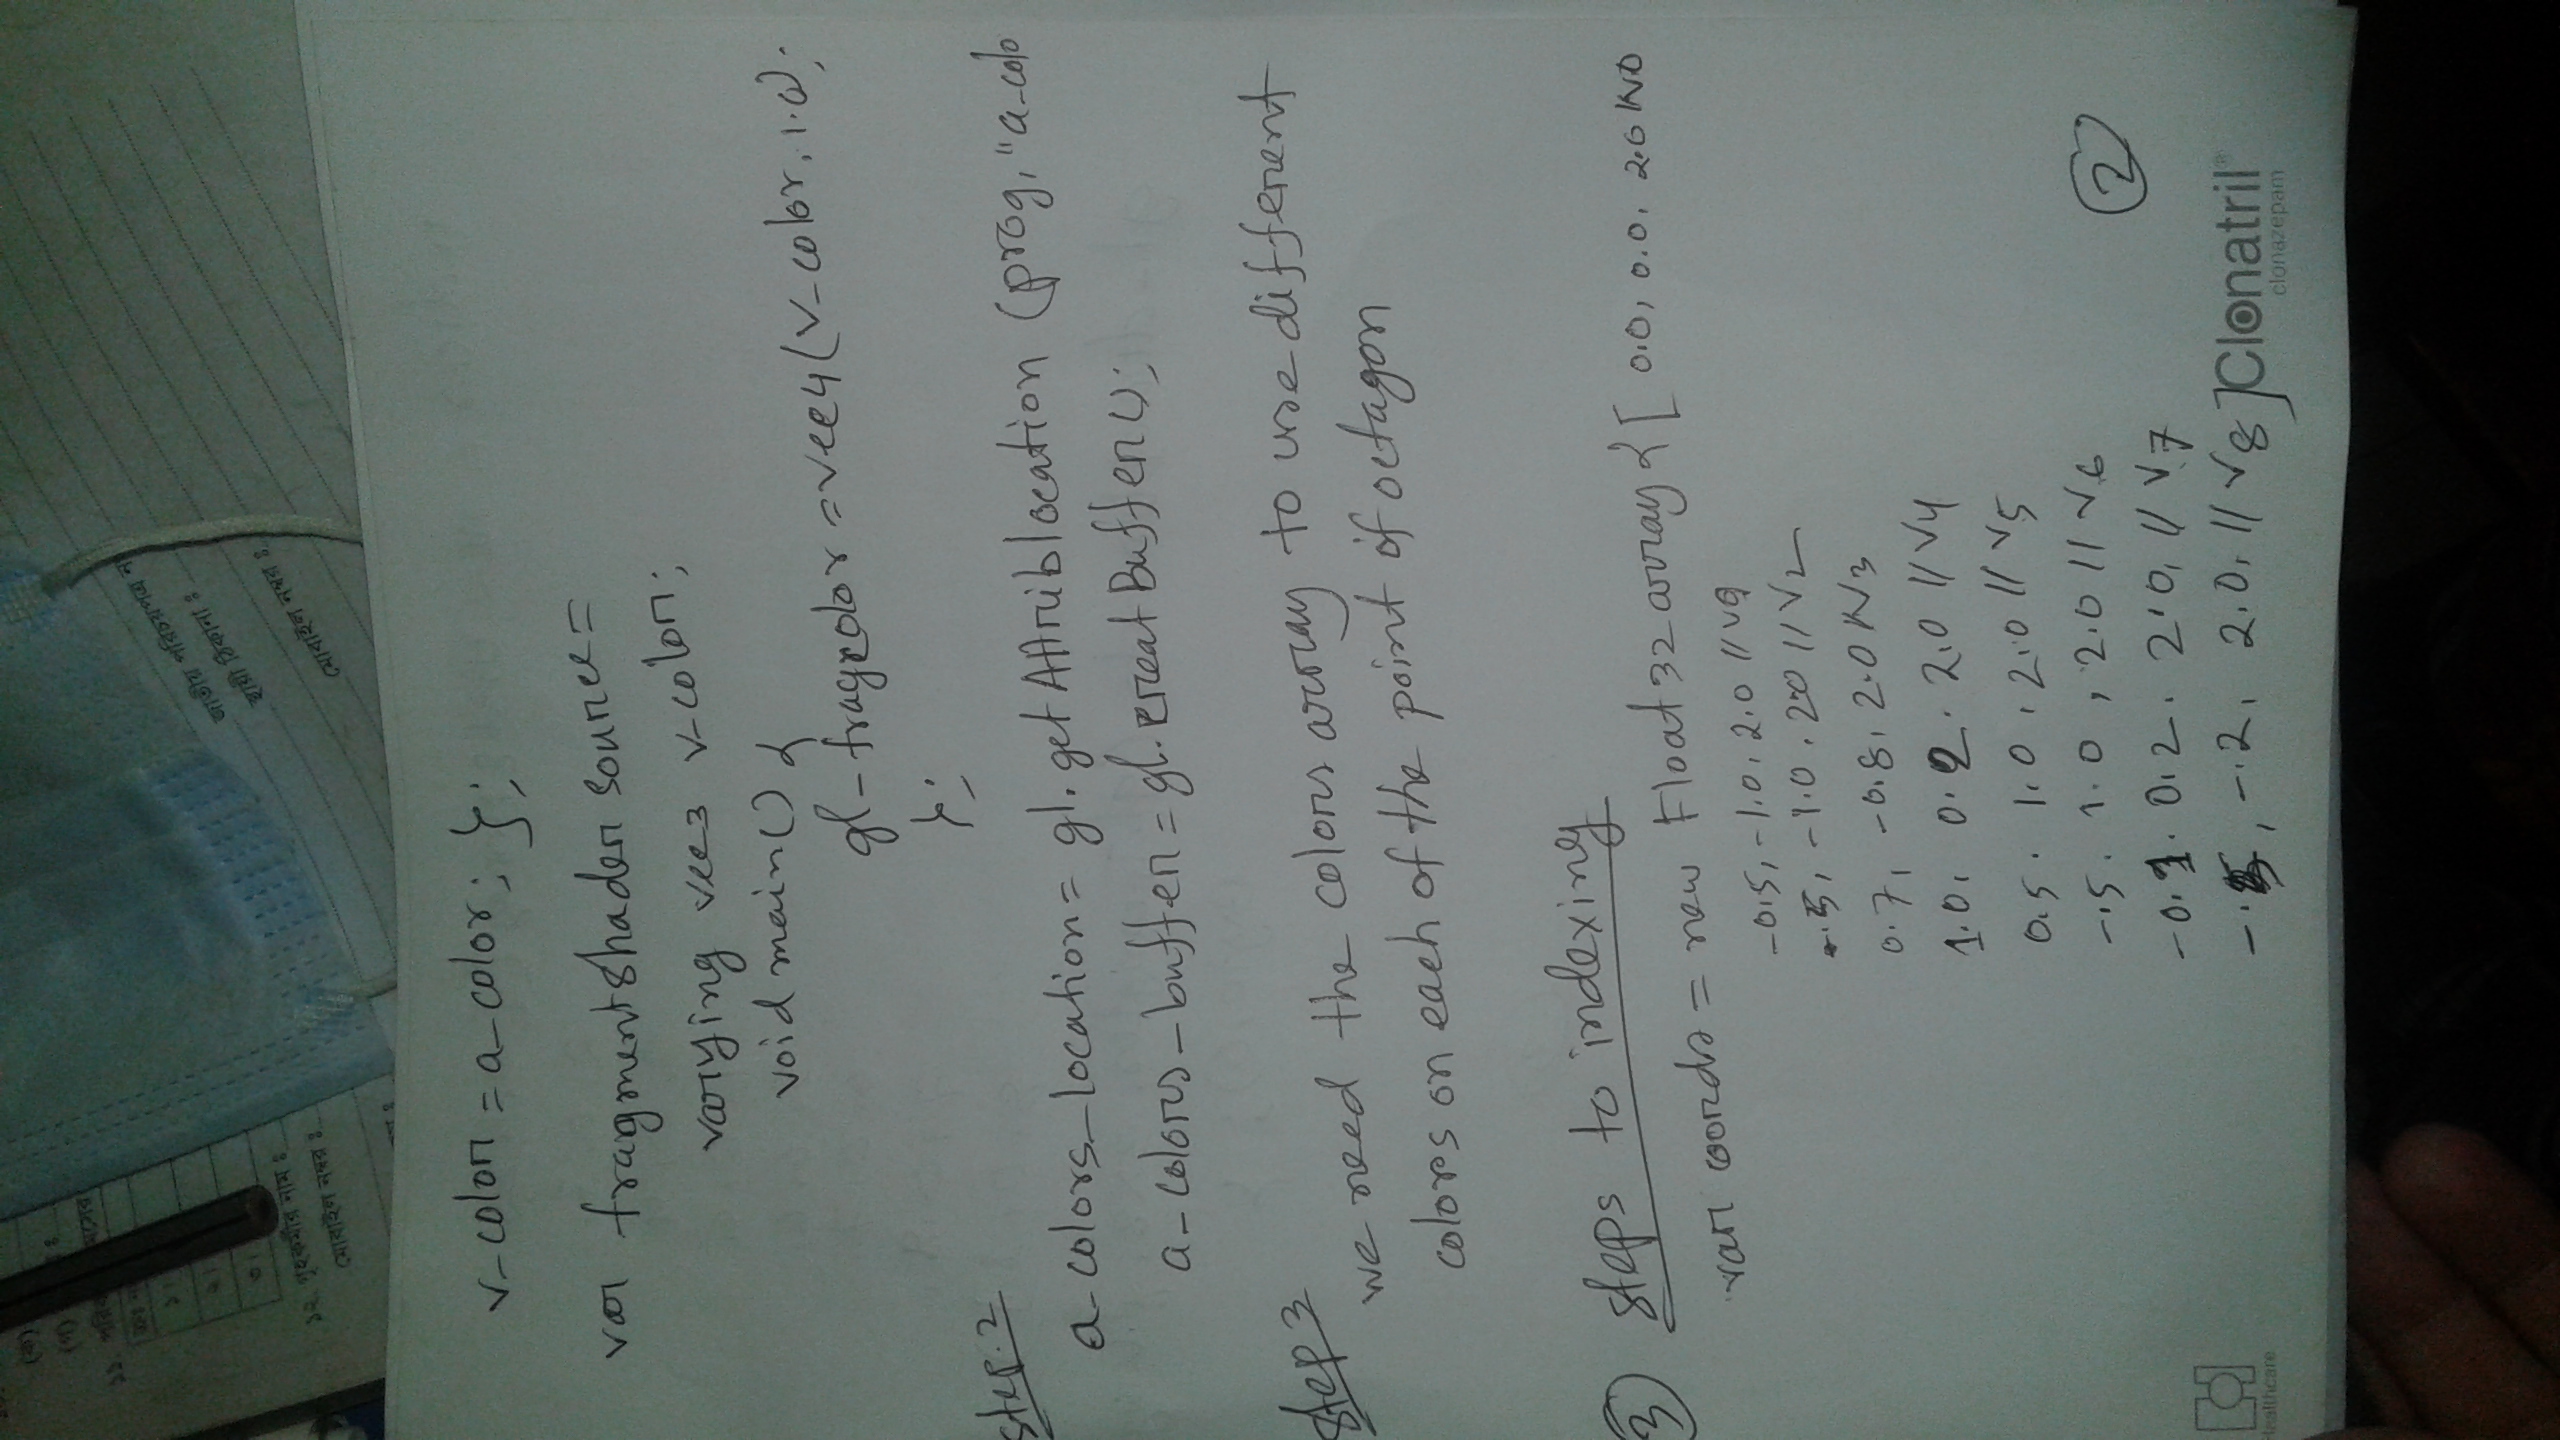 (ক)
(গ)
১১. পরি
১।
২।
৩।
১২. গৃহকর্মীর নাম :
মোবাইল নম্বর :
জাতীয় পরিচয়পত্র ন
স্থায়ী ঠিকানা :
মোবাইল নম্বর :
v-color = a-color; };
var fragmentshader source =
varying vec3 v-color;
void main() {
gl-fragcolor = vec4(v-color, 1.0);
};
step.2
a-colors_location = gl.getAttriblocation (prog, "a-colo
a-colors-buffer = gl.creatBuffer();
step 3
we need the colors array to use different
colors on each of the point of octagon
3 steps to indexing
var coords = new Float32 array { [ 0.0, 0.0, 2.0 //v0
-0.5, -1.0, 2.0 //
.5, -1.0, 2.0 // v2
0.7, -0.8, 2.0 //v3
1.0, 0.2. 2.0 // v4
0.5. 1.0, 2.0 // v5
-.5. 1.0, 2.0 // v6
-0.1. 0.2. 2.0, // v7
-.2, 2.0, // v8 ]
2
Healthcare
Clonatril®
clonazepam